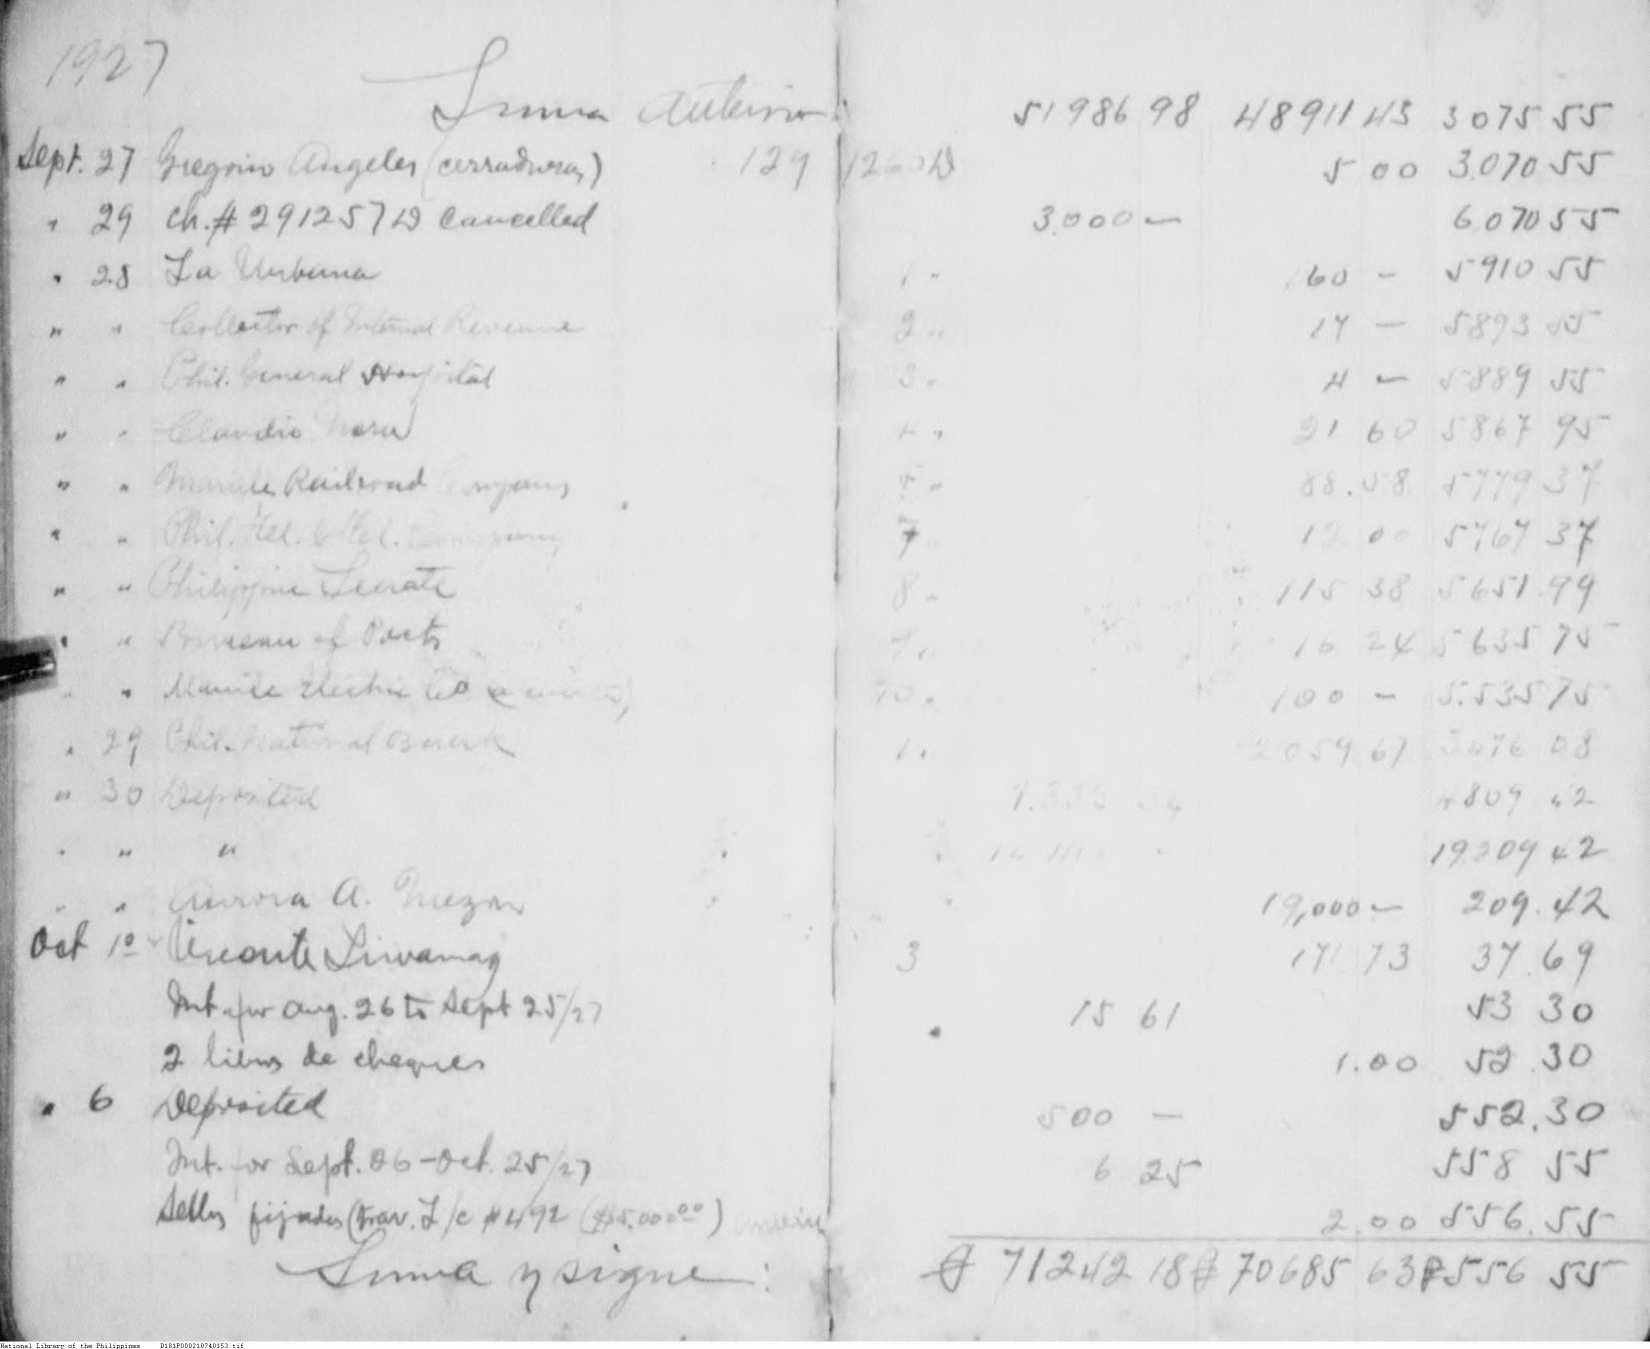 1927
Suma Anterior: 51986 98 48911 43 3075 55
Sept. 27 Gregorio Angeles (cerraduras) 129 1260 D 5 00 3.070 55
" 29 ch. # 291257 D cancelled 3.000 — 6.070 55
" 28 La Urbana 1 " 160 — 5910 55
" " Collector of Internal Revenue 2 " 17 — 5893 55
" " Phil. General Hospital 3 " 4 — 5889 55
" " Claudio 4 " 21 60 5867 95
" " Manila Railroad Company 5 " 88.58 5779 37
" " Phil. Tel. & Tel. Company 7 12 00 5767 37
" " Philippine Senate 8 " 115 38 5651.99
" " Bureau of Posts 9 " 16 24 5635 75
" " Manila Electric Co 10 " 100 — 5.535 75
" 29 Phil. National Bank 1 " 2059 67 3476 08
" 30 Deposited 1.333 34 4809 42
" " " 19.209 42
" " Aurora A. Quezon 19,000 — 209.42
Oct 1º Vicente Liwanag 3 171 73 37.69
Int. for Aug. 26 to Sept 25/27 15 61 53 30
2 libros de cheques 1.00 52.30
" 6 Deposited 500 — 552.30
Int. for Sept. 26 - Oct. 25/27 6 25 558 55
Sellos fijados (trav. L/c #492 (₱5.000.00) 2.00 556.55
Suma y sigue: ₱ 71242 18 ₱ 70685 63 ₱ 556 55
National Library of the Philippines D181P000210740153.tif